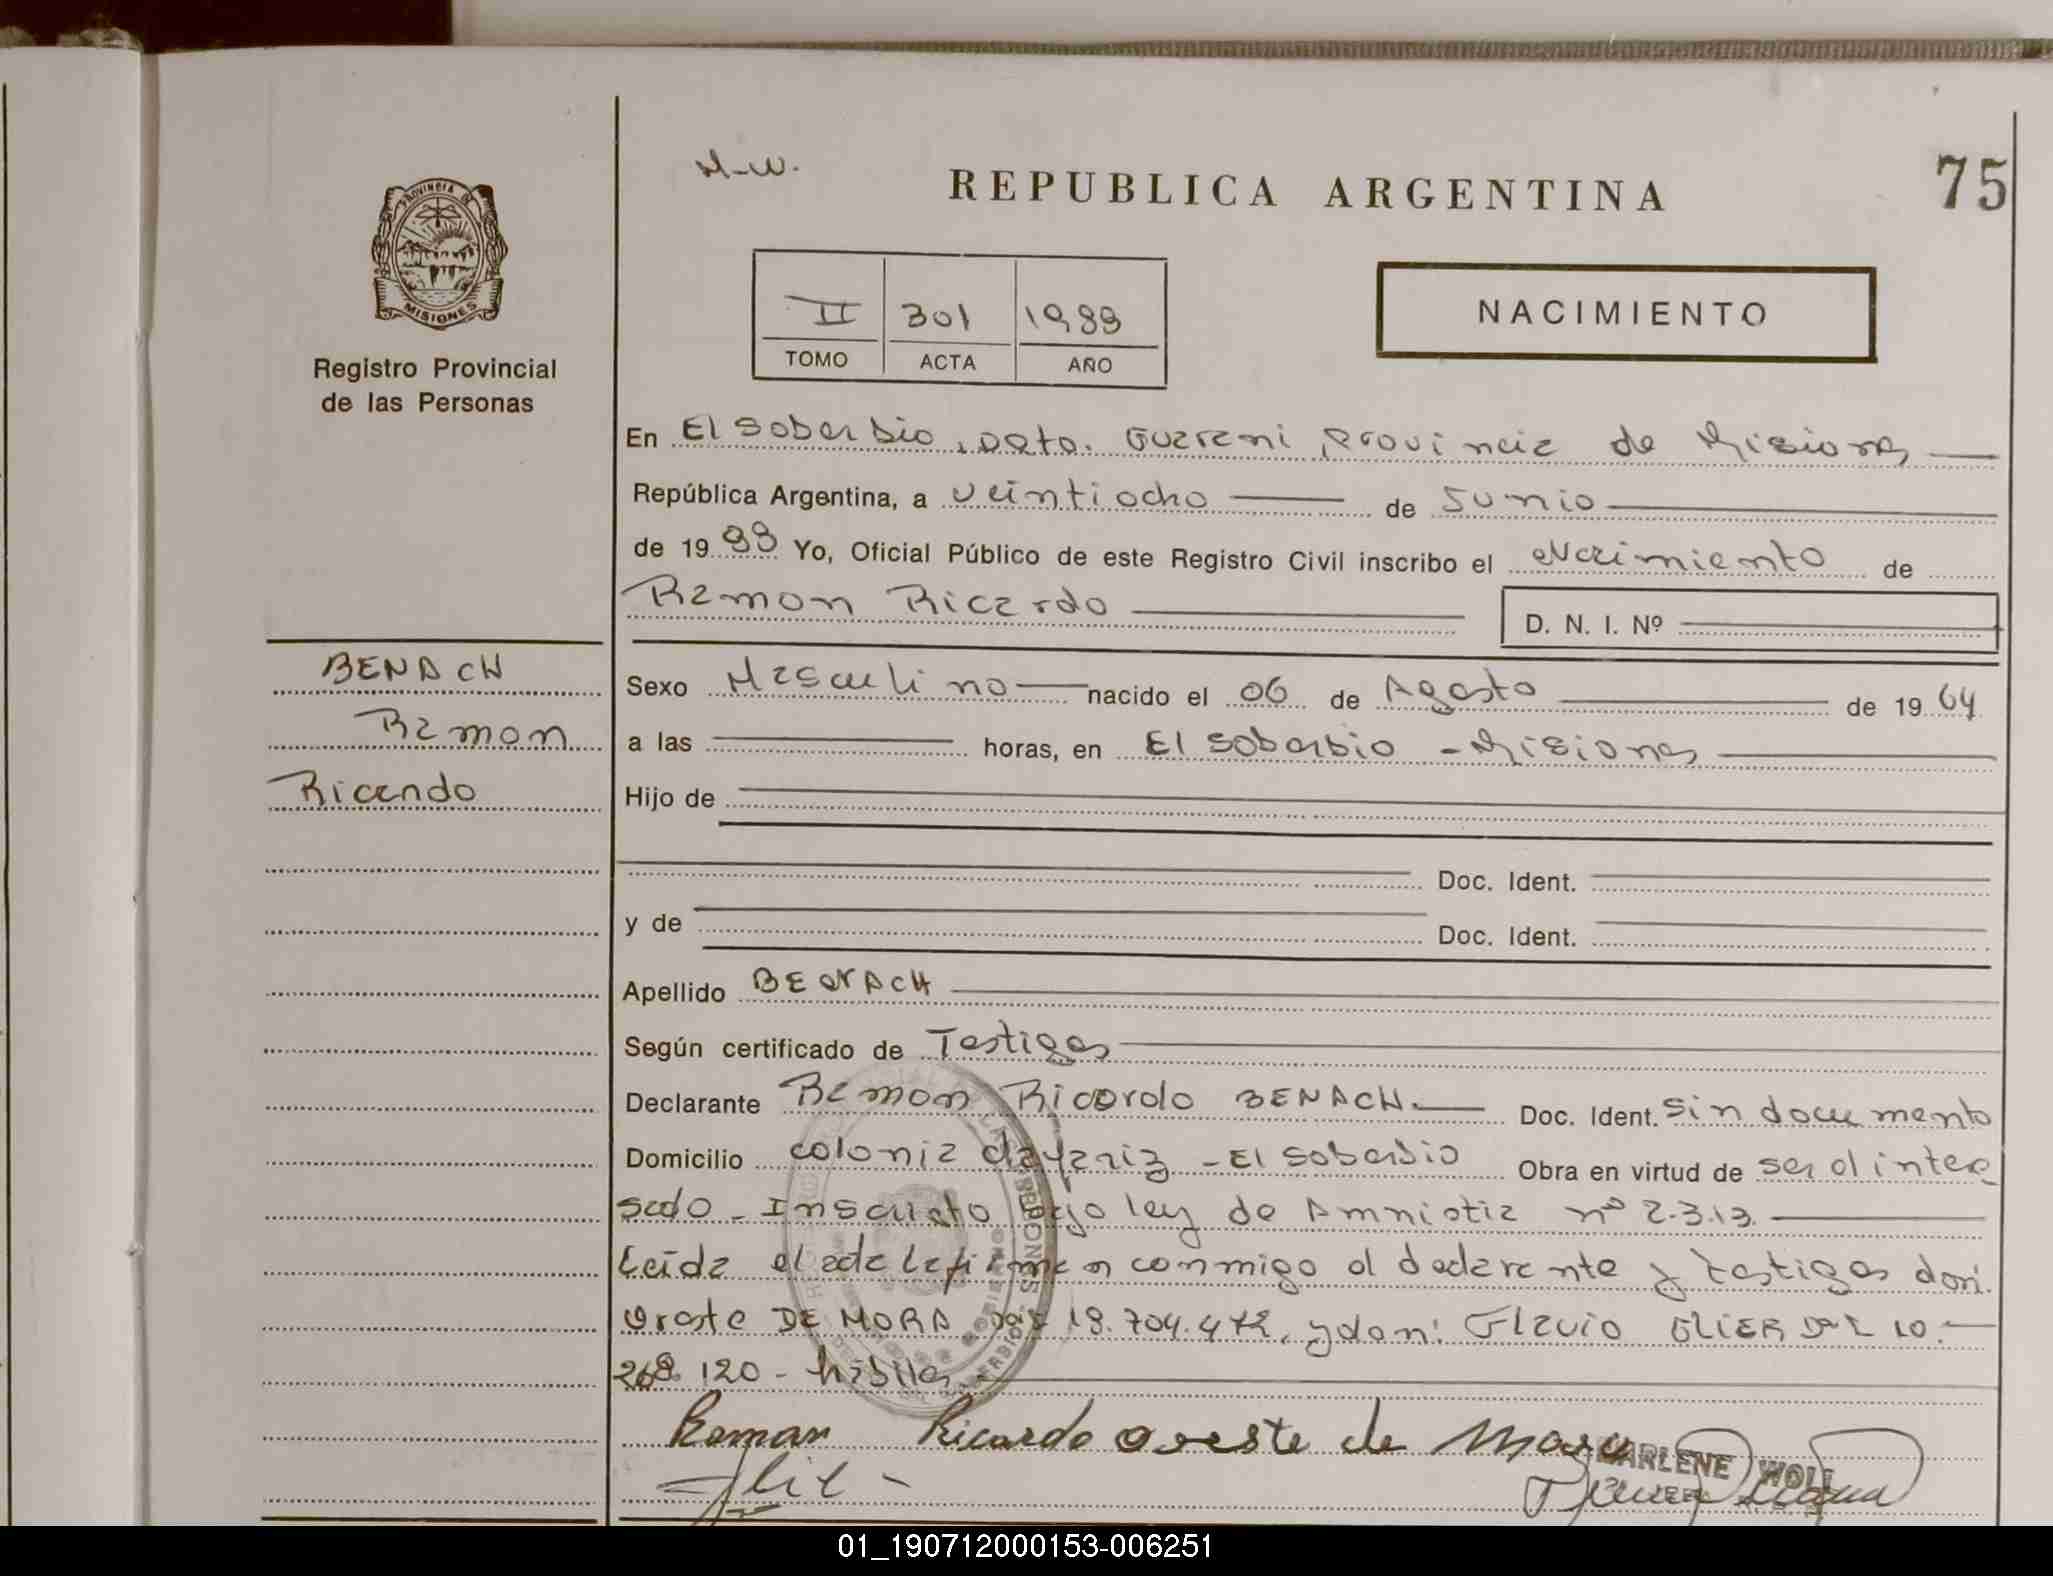 M-W.
REPUBLICA ARGENTINA
75
PROVINCIA DE
MISIONES
Registro Provincial
de las Personas
II 301 1988
TOMO ACTA AÑO
NACIMIENTO
En El Soberbio, Dpto. Guarani, Provincia de Misiones
República Argentina, a veintiocho de Junio
de 1988 Yo, Oficial Público de este Registro Civil inscribo el Nacimiento de
Ramon Ricardo
D. N. I. Nº
BENACH
Ramon
Ricardo
Sexo Masculino nacido el 06 de Agosto de 1964
a las horas, en El Soberbio - Misiones
Hijo de
Doc. Ident.
y de Doc. Ident.
Apellido BENACH
Según certificado de Testigos
Declarante Ramon Ricardo BENACH. Doc. Ident. sin documento
Domicilio colonia - El Soberbio Obra en virtud de ser el intere
sado - Inscripto bajo ley de Amnistia nº 2.313.
Leida el acta la firman conmigo el declarante y testigos don:
Oreste DE MORA 18.704.472, y don: Flavio 10.-
268.120 - hábiles
Roman Ricardo Oreste de Mora
MARLENE WOLL
01_190712000153-006251